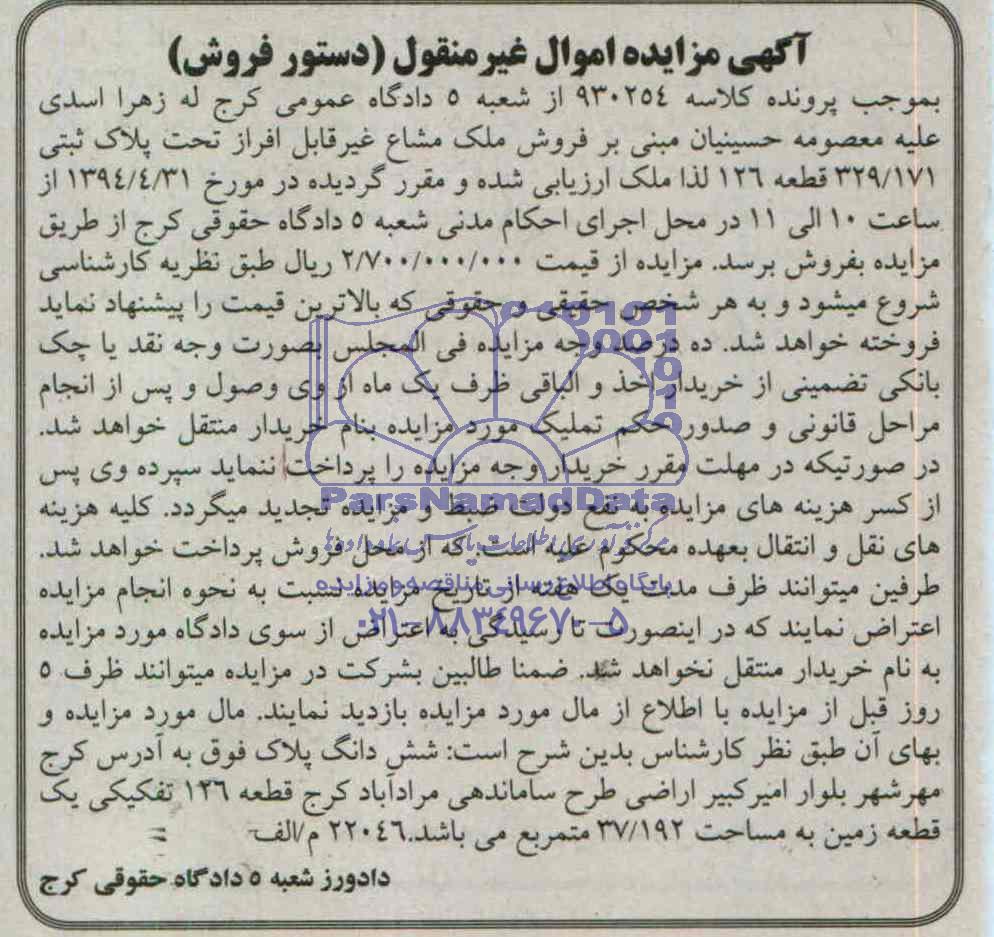 آگهی مزایده اموال غیرمنقول (دستور فروش)
بموجب پرونده کلاسه ۹۳۰۲۵٤ از شعبه ۵ دادگاه عمومی کرج له زهرا اسدی
علیه معصومه حسینیان مبنی بر فروش ملک مشاع غیرقابل افراز تحت پلاک ثبتی
۳۲۹/۱۷۱ قطعه ۱۲٦ لذا ملک ارزیابی شده و مقرر گردیده در مورخ ۱۳۹٤/٤/۳۱ از
ساعت ۱۰ الی ۱۱ در محل اجرای احکام مدنی شعبه ۵ دادگاه حقوقی کرج از طریق
مزایده بفروش برسد. مزایده از قیمت ۲/۷۰۰/۰۰۰/۰۰۰ ریال طبق نظریه کارشناسی
شروع میشود و به هر شخص حقیقی و حقوقی که بالاترین قیمت را پیشنهاد نماید
فروخته خواهد شد. ده درصد وجه مزایده فی المجلس بصورت وجه نقد یا چک
بانکی تضمینی از خریدار اخذ و الباقی ظرف یک ماه از وی وصول و پس از انجام
مراحل قانونی و صدور حکم تملیک مورد مزایده بنام خریدار منتقل خواهد شد.
در صورتیکه در مهلت مقرر خریدار وجه مزایده را پرداخت ننماید سپرده وی پس
از کسر هزینه های مزایده به نفع دولت ضبط و مزایده تجدید میگردد. کلیه هزینه
های نقل و انتقال بعهده محکوم علیه است. که از محل فروش پرداخت خواهد شد.
طرفین میتوانند ظرف مدت یک هفته از تاریخ مزایده نسبت به نحوه انجام مزایده
اعتراض نمایند که در اینصورت تا رسیدگی به اعتراض از سوی دادگاه مورد مزایده
به نام خریدار منتقل نخواهد شد. ضمنا طالبین بشرکت در مزایده میتوانند ظرف ۵
روز قبل از مزایده با اطلاع از مال مورد مزایده بازدید نمایند. مال مورد مزایده و
بهای آن طبق نظر کارشناس بدین شرح است: شش دانگ پلاک فوق به آدرس کرج
مهرشهر بلوار امیرکبیر اراضی طرح ساماندهی مرادآباد کرج قطعه ۱۲٦ تفکیکی یک
قطعه زمین به مساحت ۳۷/۱۹۲ متمربع می باشد.۲۲۰٤٦ م/الف
دادورز شعبه ۵ دادگاه حقوقی کرج
ParsNamadData
مرکز فرآوری اطلاعات پارس نماد داده ها
پایگاه اطلاع رسانی مناقصه و مزایده
۰۲۱-۸۸۳٤۹٦۷۰-۵